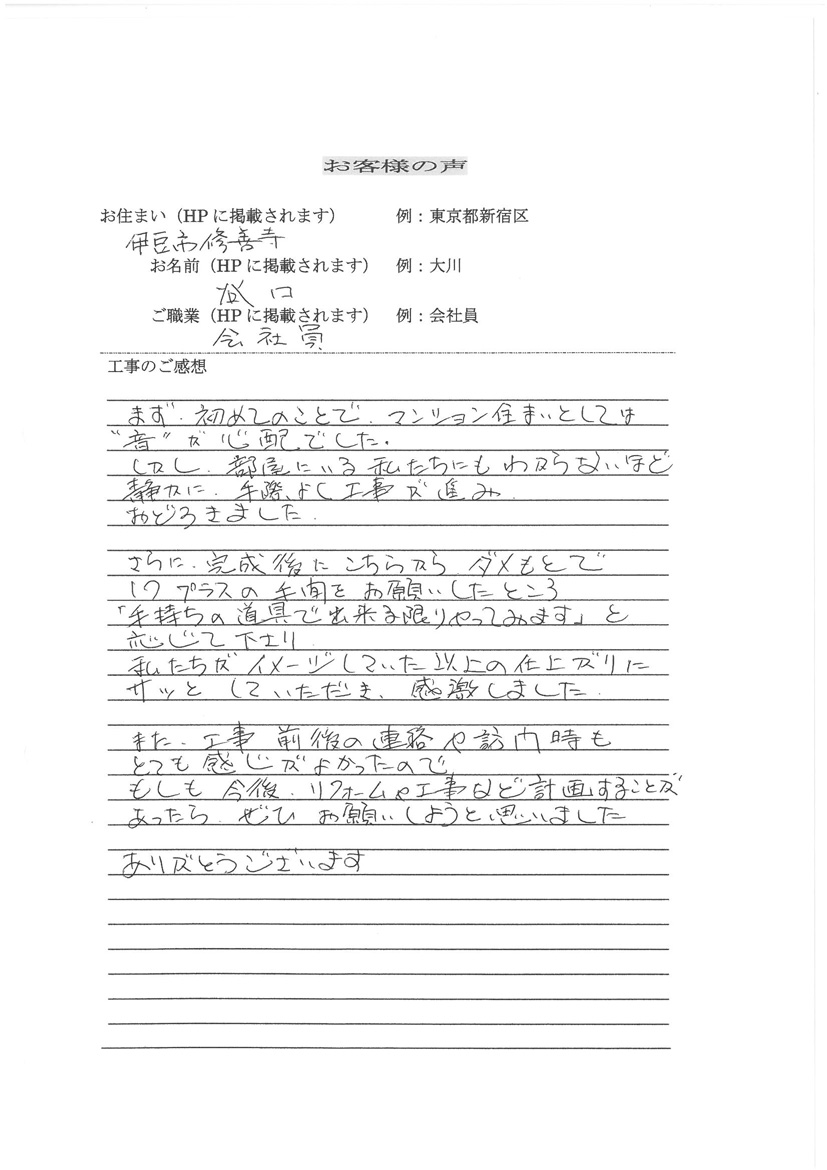 お客様の声
お住まい（HPに掲載されます）　例：東京都新宿区
伊豆市修善寺
お名前（HPに掲載されます）　例：大川
口
ご職業（HPに掲載されます）　例：会社員
会社員
工事のご感想
まず、初めてのことで、マンション住まいとしては
"音"が心配でした。
しかし、部屋にいる私たちにもわからないほど
静かに、手際よく工事が進み、
おどろきました。
さらに、完成後にこちらから、ダメもとで
1つプラスの手間をお願いしたところ
「手持ちの道具で出来る限りやってみます」と
応じて下さり
私たちがイメージしていた以上の仕上がりに
サッとしていただき、感激しました。
また、工事前後の連絡や訪内時も
とても感じがよかったので
もしも今後、リフォームや工事など計画することが
あったら、ぜひお願いしようと思いました
ありがとうございます